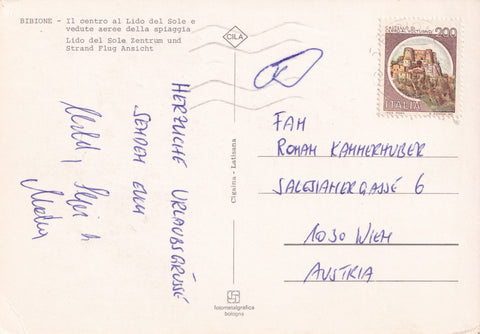 BIBIONE - Il centro al Lido del Sole e
vedute aeree della spiaggia
Lido del Sole Zentrum und
Strand Flug Ansicht
CILA
200
ITALIA
HERZLICHE URLAUBSGRÜSSE
SENDEN EUCH
FAM
ROMAN KAMMERHUBER
SALESIANERGASSE 6
1030 WIEN
AUSTRIA
Cigaina - Latisana
fotometalgrafica
bologna